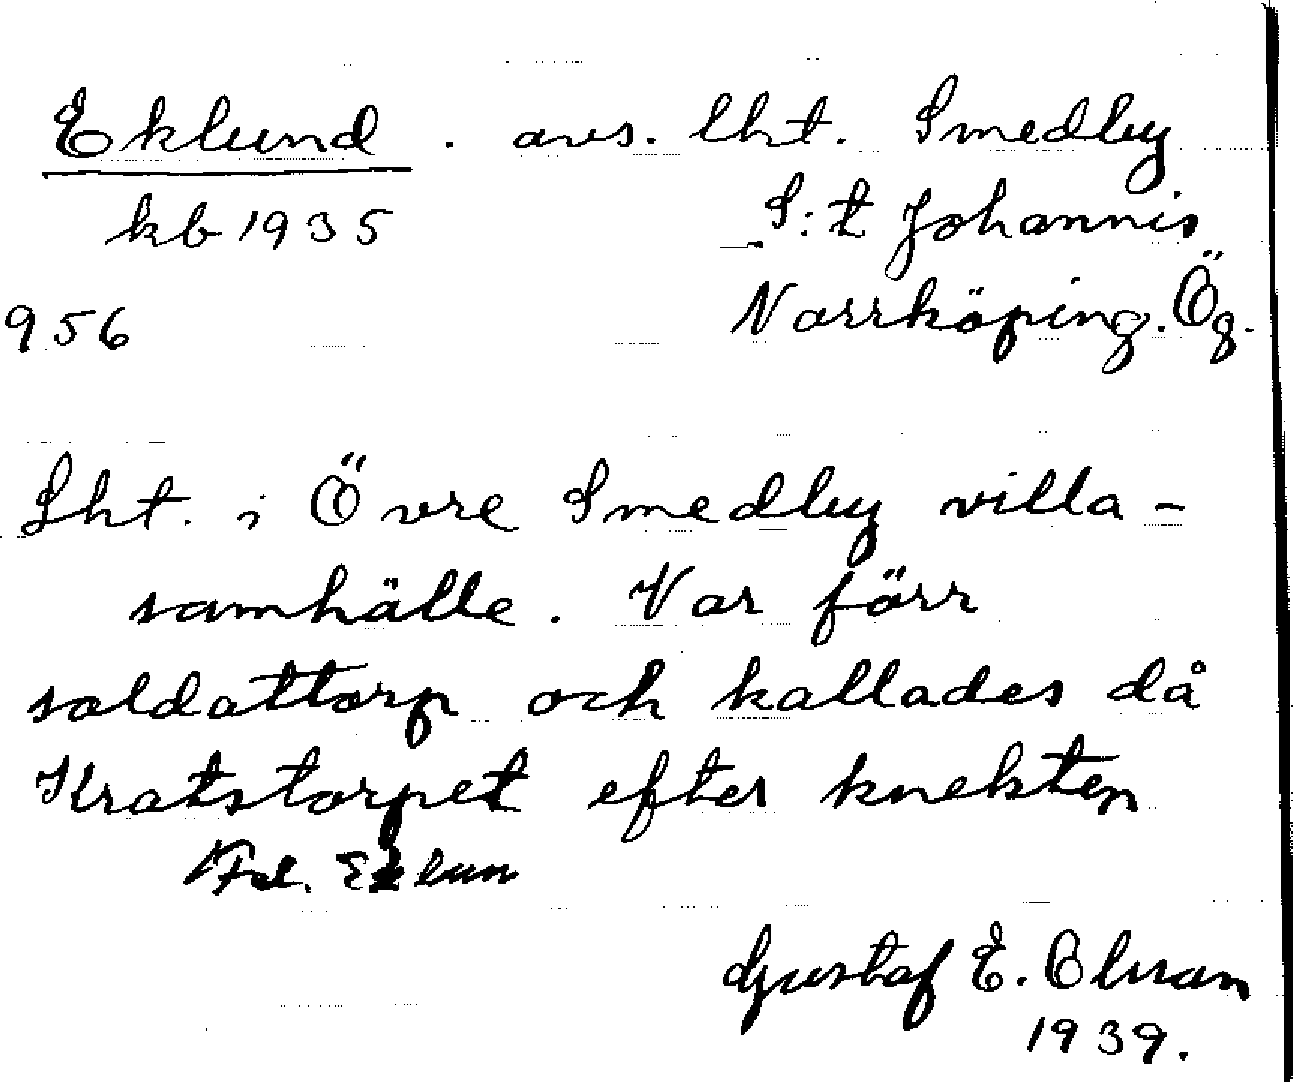 Eklund . avs. lht. Smedby
kb 1935 S:t Johannis
956 Norrköping. Ög.
Lht. i Övre Smedby villa-
samhälle. Var förr
soldattorp och kallades då
Kratstorpet efter knekten
Gustaf E. Olsson
1939.